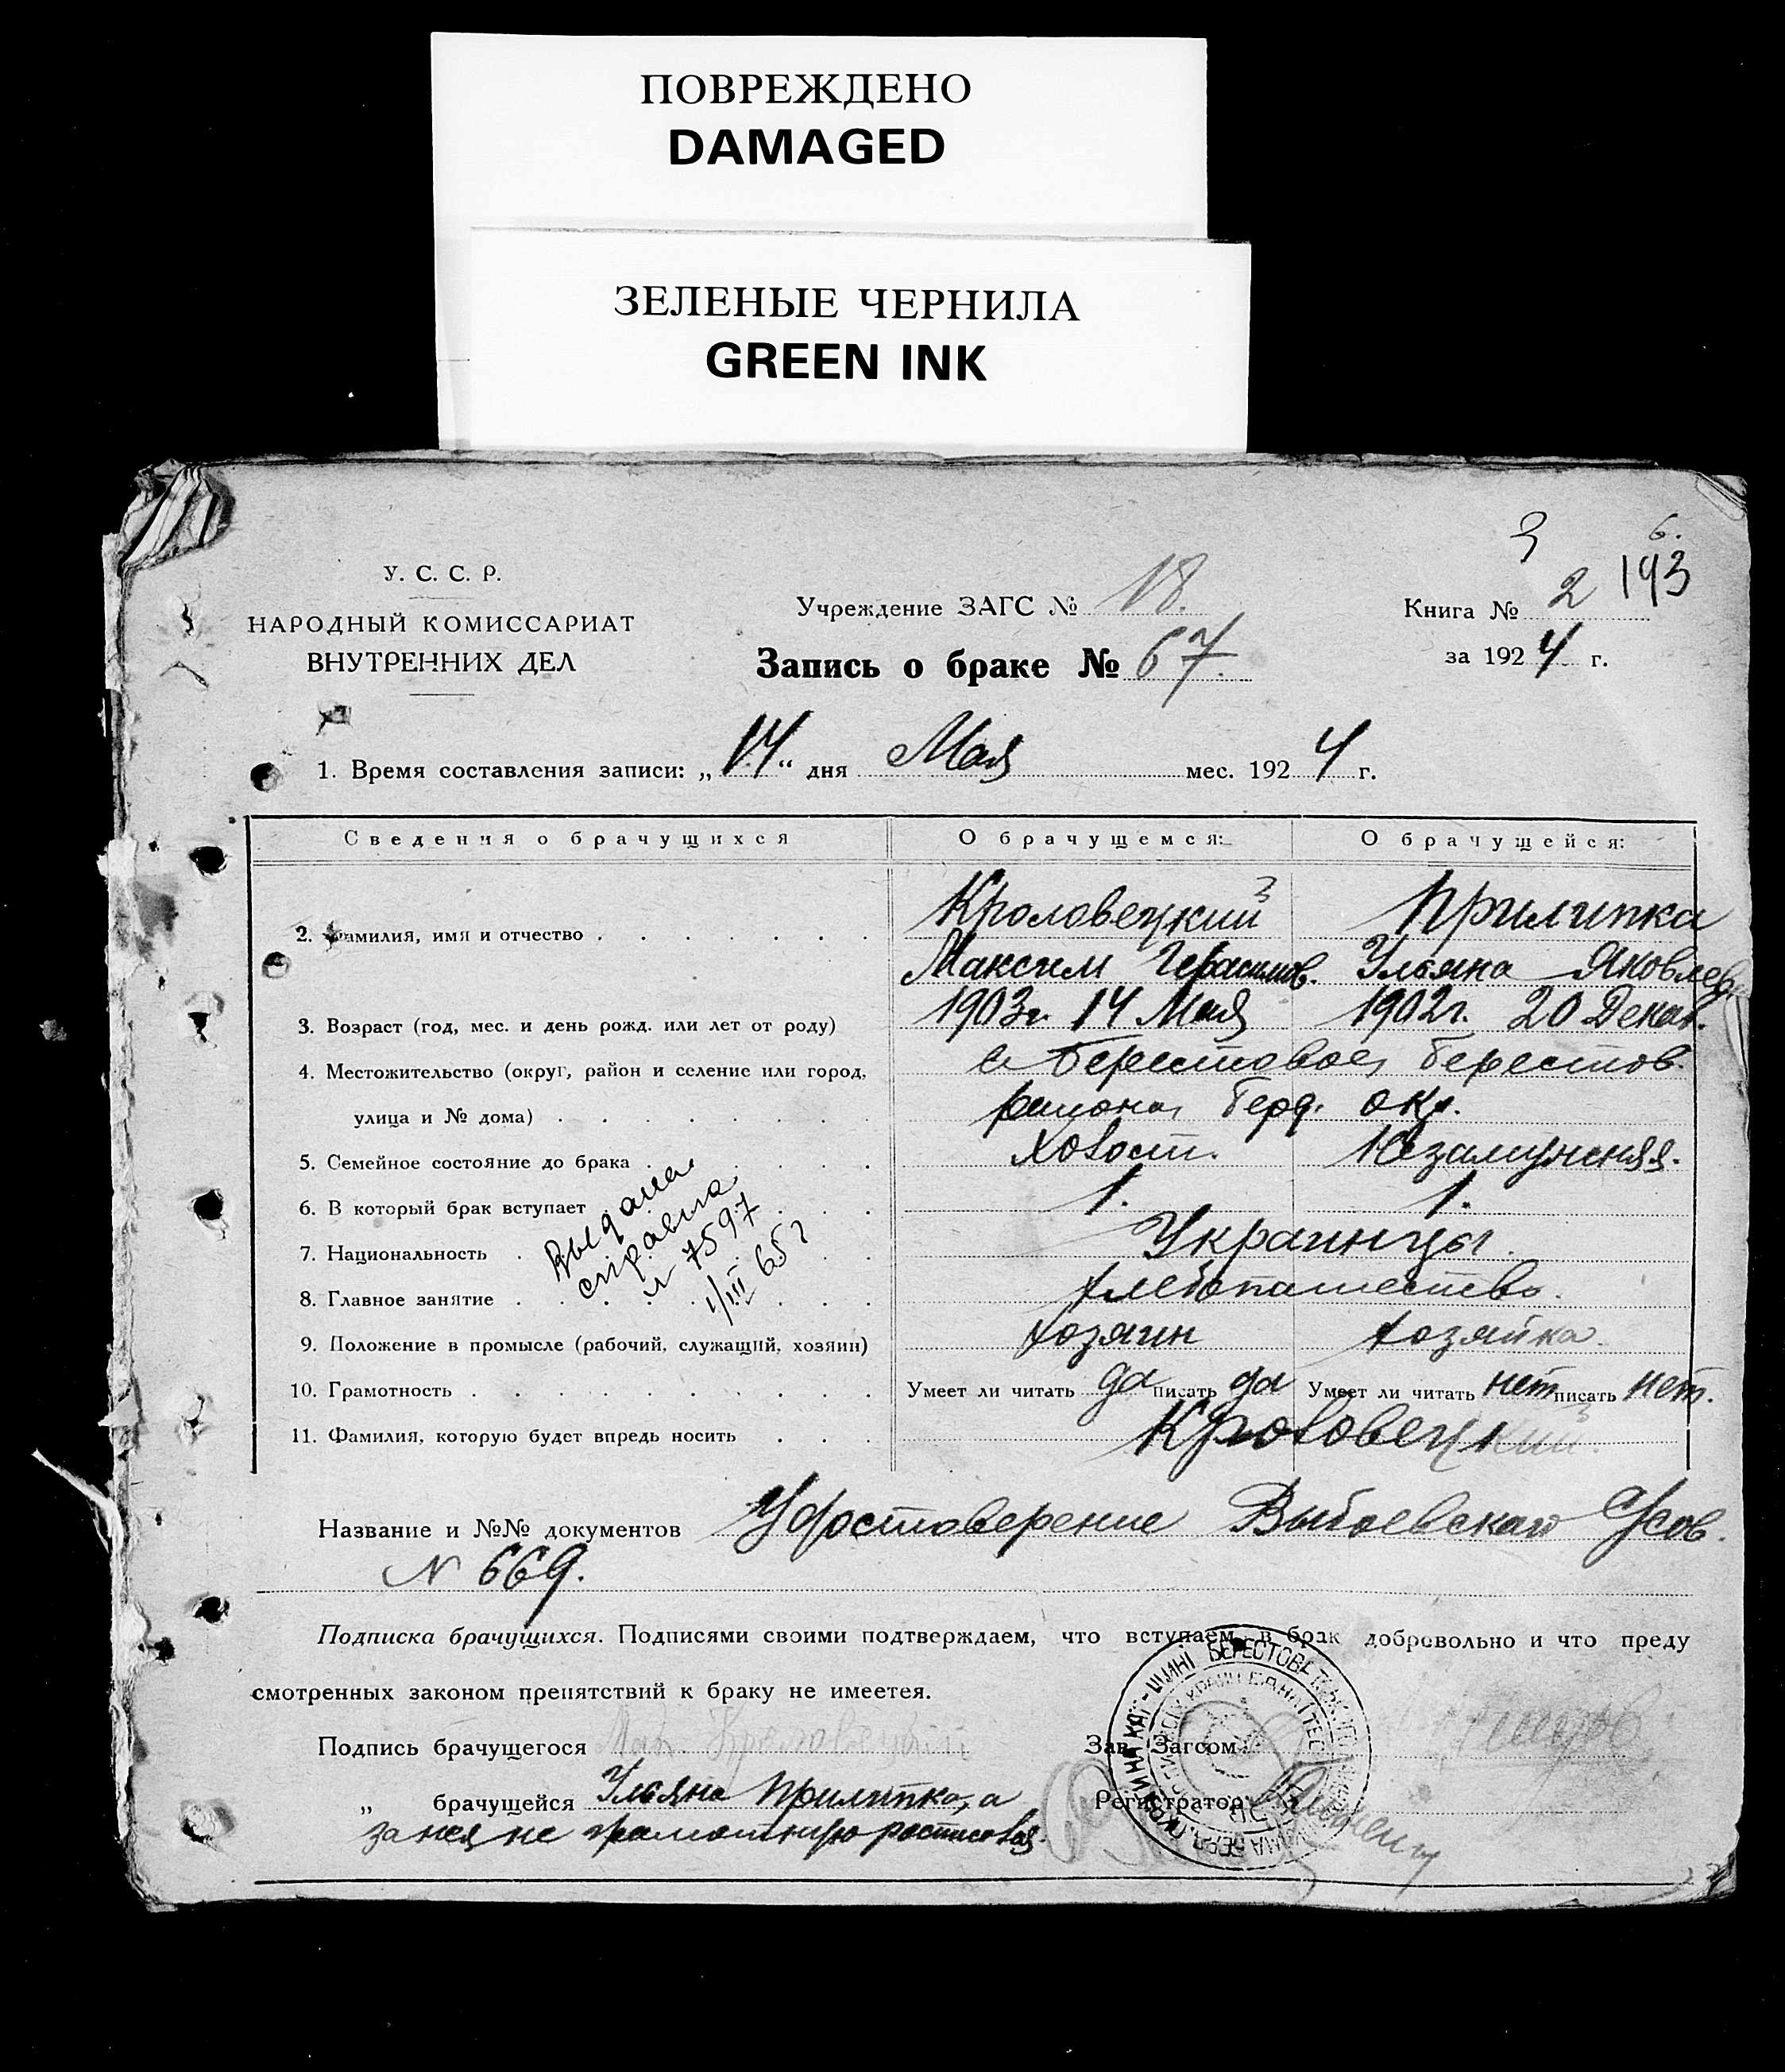 ПОВРЕЖДЕНО
DAMAGED
ЗЕЛЕНЫЕ ЧЕРНИЛА
GREEN INK
3 6.
193
У. С. С. Р.
НАРОДНЫЙ КОМИССАРИАТ
ВНУТРЕННИХ ДЕЛ
Учреждение ЗАГС № 18.
Запись о браке № 67.
Книга № 2
за 1924 г.
1. Время составления записи: „14“ дня Мая мес. 1924 г.
Сведения о брачущихся О брачущемся: О брачущейся:
2. Фамилия, имя и отчество Кроловецкий Прилипка
Максим Герасимов. Ульяна Яковлев.
3. Возраст (год, мес. и день рожд. или лет от роду) 1903г. 14 Мая 1902г. 20 Декаб.
4. Местожительство (округ, район и селение или город, с Берестовое, Берестов.
улица и № дома) района, Берд. окр.
5. Семейное состояние до брака Холост. Незамужняя.
6. В который брак вступает 1. 1.
7. Национальность Украинцы.
8. Главное занятие Хлебопашество.
9. Положение в промысле (рабочий, служащий, хозяин) хозяин хозяйка.
10. Грамотность Умеет ли читать да писать да Умеет ли читать нет писать нет.
11. Фамилия, которую будет впредь носить Кроловецкий.
Выдана
справка
№ 7597
1/III 65 г
Название и №№ документов Удостоверение Выбоевскаго С/сов.
N 669.
Подписка брачущихся. Подписями своими подтверждаем, что вступаем в брак добровольно и что преду
смотренных законом препятствий к браку не имеется.
Подпись брачущегося Мак. Кроловецкий Зав. Загсом
„ брачущейся Ульяна Прилипка, а Регистратор
за нея не грамотную росписовал.